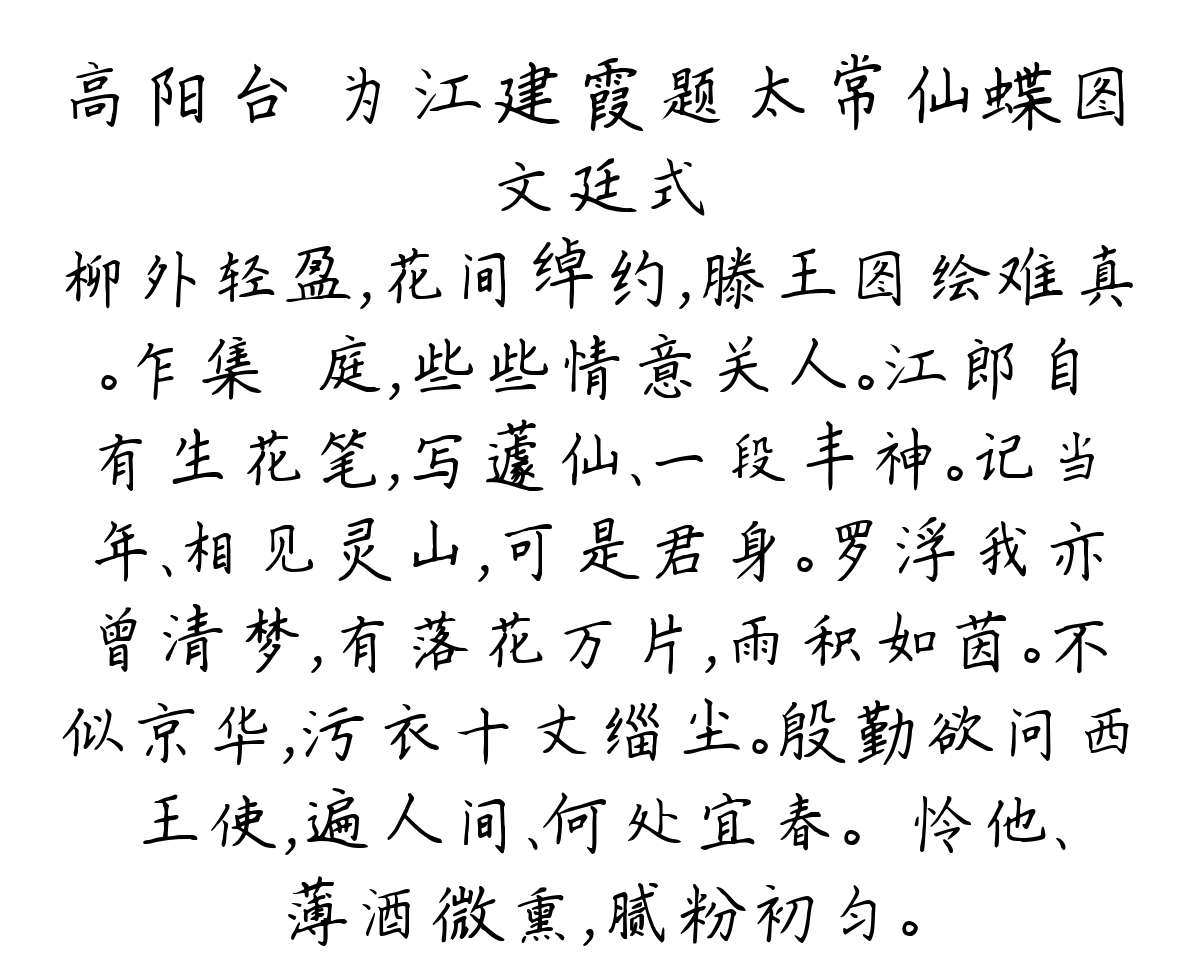 高阳台 为江建霞题太常仙蝶图
文廷式
柳外轻盈,花间绰约,滕王图绘难真
。乍集 庭,些些情意关人。江郎自
有生花笔,写蘧仙、一段丰神。记当
年、相见灵山,可是君身。罗浮我亦
曾清梦,有落花万片,雨积如茵。不
似京华,污衣十丈缁尘。殷勤欲问西
王使,遍人间、何处宜春。 怜他、
薄酒微熏,腻粉初匀。